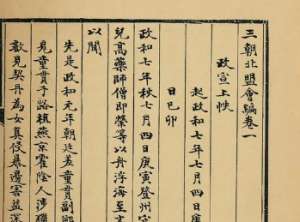 三朝北盟會編卷一
政宣上帙
起政和七年七月四日庚
日己卯
政和七年秋七月四日庚寅登州
兒高藥師曾即榮等以舟浮海至
以聞
先是政和元年朝廷差童貫副
見童貫于路植燕京霍陰人涉
歎見契丹為女真侵暴邊害益深